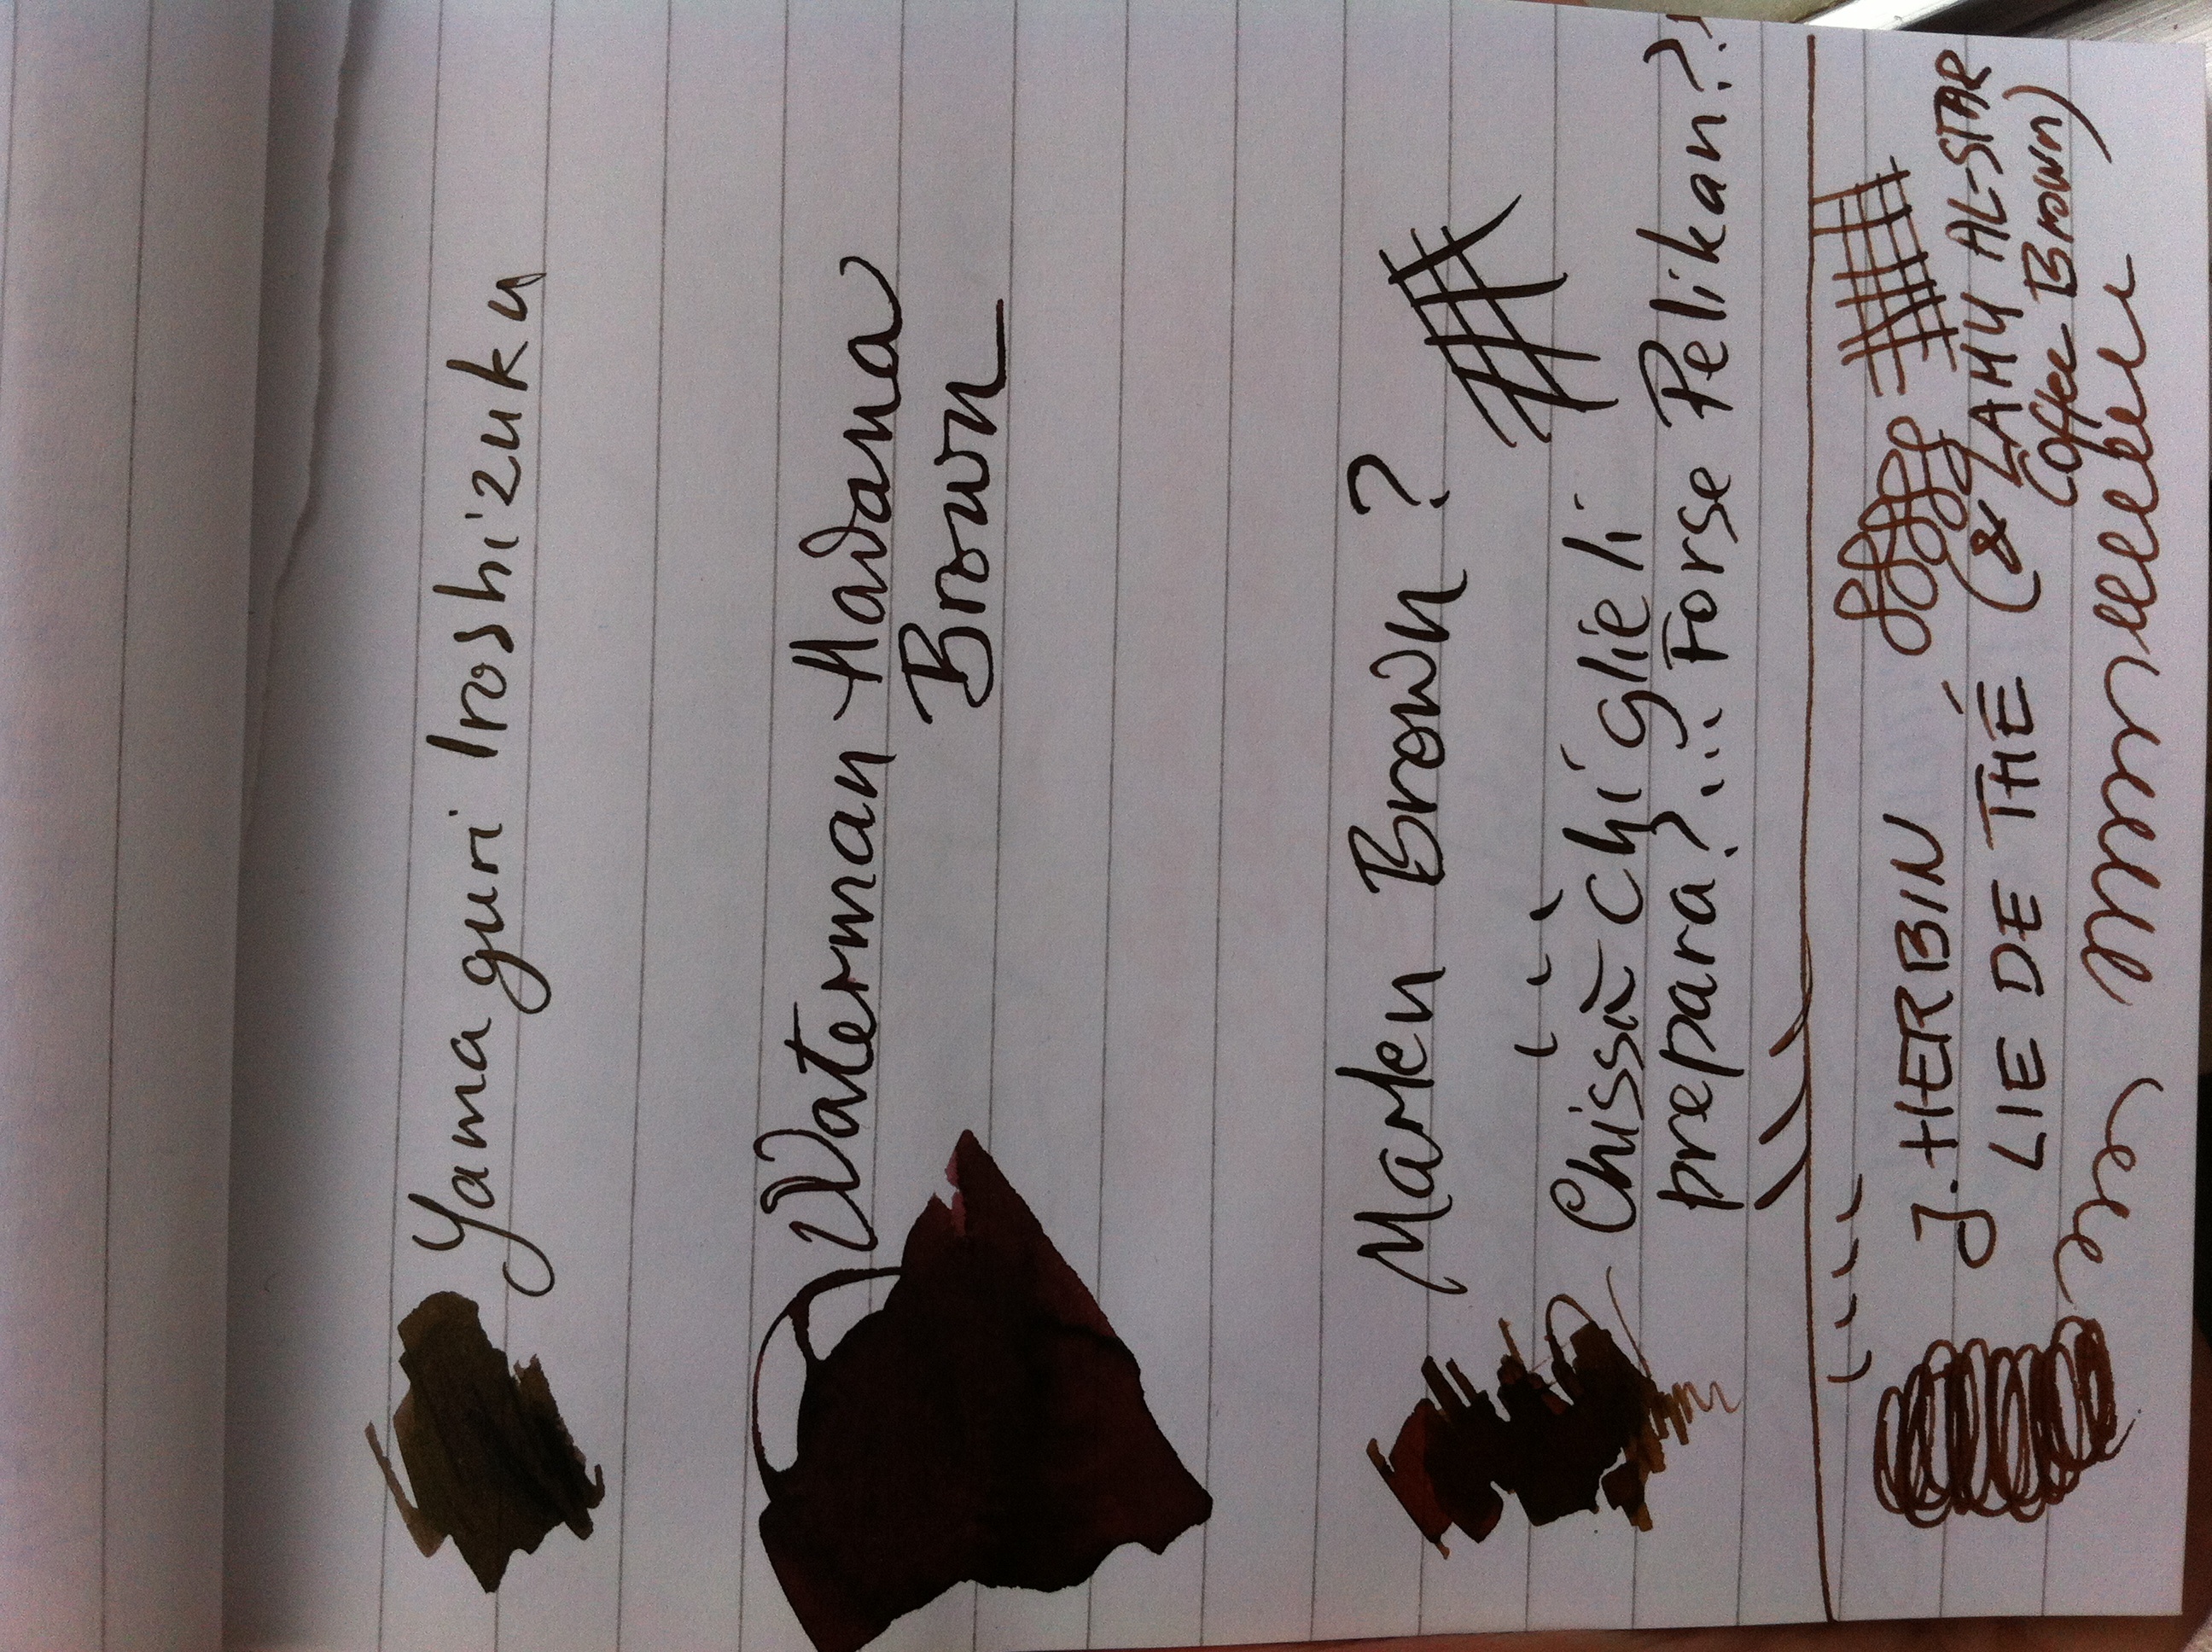 Yamaguri Iroshizuku
Waterman Havana
Brown
Marlen Brown?
Chissà chi glieli
prepara?... Forse Pelikan??
J. HERBIN
LIE DE THÉ (& LAMY AL-STAR
Coffee Brown)